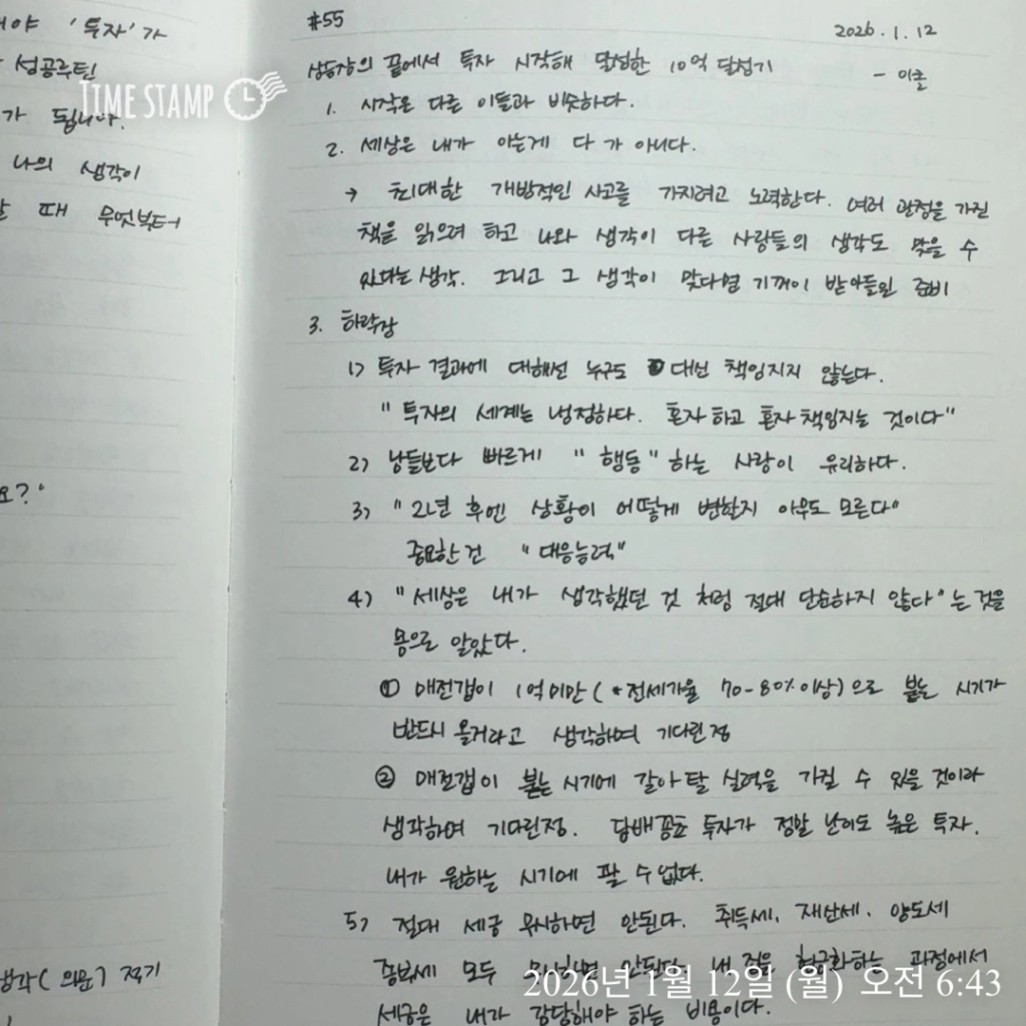 야 '투자'가
성공루틴
가 됩니다.
나의 생각이
때 무엇부터
요?"
생각(의문) 적기
TIME STAMP
#55
2026.1.12
상승장의 끝에서 투자 시작해 달성한 10억 달성기 - 이글
1. 시작은 다른 이들과 비슷하다.
2. 세상은 내가 아는게 다 가 아니다.
→ 최대한 개방적인 사고를 가지려고 노력한다. 여러 관점을 가진
책을 읽으려 하고 나와 생각이 다른 사람들의 생각도 맞을 수
있다는 생각. 그리고 그 생각이 맞다면 기꺼이 받아들일 준비
3. 하락장
1) 투자 결과에 대해선 누구도 대신 책임지지 않는다.
"투자의 세계는 냉정하다. 혼자 하고 혼자 책임지는 것이다"
2) 남들보다 빠르게 "행동"하는 사람이 유리하다.
3) "2년 후엔 상황이 어떻게 변할지 아무도 모른다"
중요한건 "대응능력"
4) "세상은 내가 생각했던 것 처럼 절대 단순하지 않다"는 것을
몸으로 알았다.
① 매전갭이 1억미만(*전세가율 70-80% 이상)으로 붙는 시기가
반드시 올거라고 생각하며 기다린점
② 매전갭이 붙는 시기에 갈아탈 실력을 가질 수 있을 것이라
생각하며 기다린점. 담배꽁초 투자가 정말 난이도 높은 투자.
내가 원하는 시기에 팔 수 없다.
5) 절대 세금 무시하면 안된다. 취득세, 재산세, 양도세
종부세 모두 안된다. 내 것을 현금화하는 과정에서
세금은 내가 감당해야 하는 비용이다.
2026년 1월 12일 (월) 오전 6:43